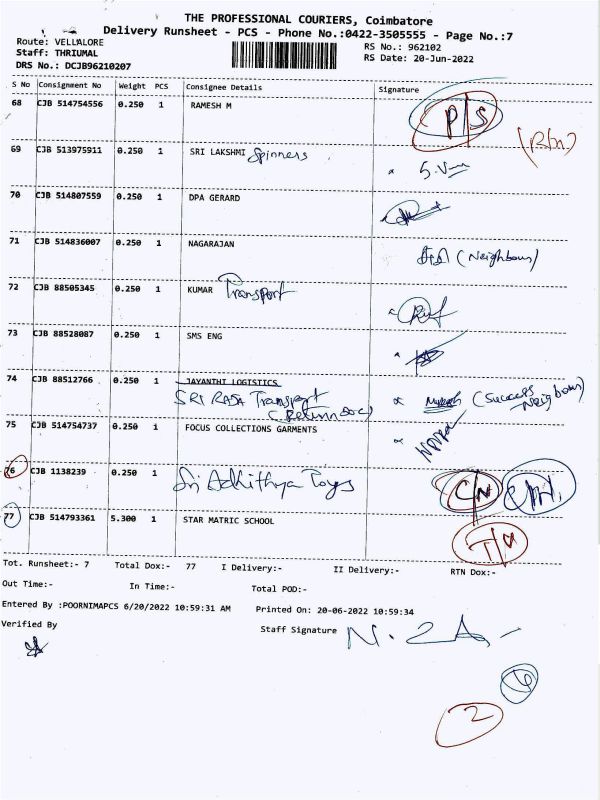 THE PROFESSIONAL COURIERS, Coimbatore
Delivery Runsheet - PCS - Phone No.:0422-3505555 - Page No.:7
Route: VELLALORE
RS No.: 962102
Staff: THRIUMAL
RS Date: 20-Jun-2022
DRS No.: DCJB96210207
S No Consignment No Weight PCS Consignee Details Signature
68 CJB 514754556 0.250 1 RAMESH M P/S
69 CJB 513975911 0.250 1 SRI LAKSHMI Spinners
70 CJB 514807559 0.250 1 DPA GERARD
71 CJB 514836007 0.250 1 NAGARAJAN (Neighbour)
72 CJB 88505345 0.250 1 KUMAR Transport
73 CJB 88528087 0.250 1 SMS ENG
74 CJB 88512766 0.250 1 JAYANTHI LOGISTICS
SRI RAJA Transport (Success Neighbour)
(Return Doc)
75 CJB 514754737 0.250 1 FOCUS COLLECTIONS GARMENTS
76 CJB 1138239 0.250 1 Sri Adhithya Toys C/N
77 CJB 514793361 5.300 1 STAR MATRIC SCHOOL
Tot. Runsheet:- 7 Total Dox:- 77 I Delivery:- II Delivery:- RTN Dox:-
Out Time:- In Time:- Total POD:-
Entered By :POORNIMAPCS 6/20/2022 10:59:31 AM Printed On: 20-06-2022 10:59:34
Verified By Staff Signature
6
2